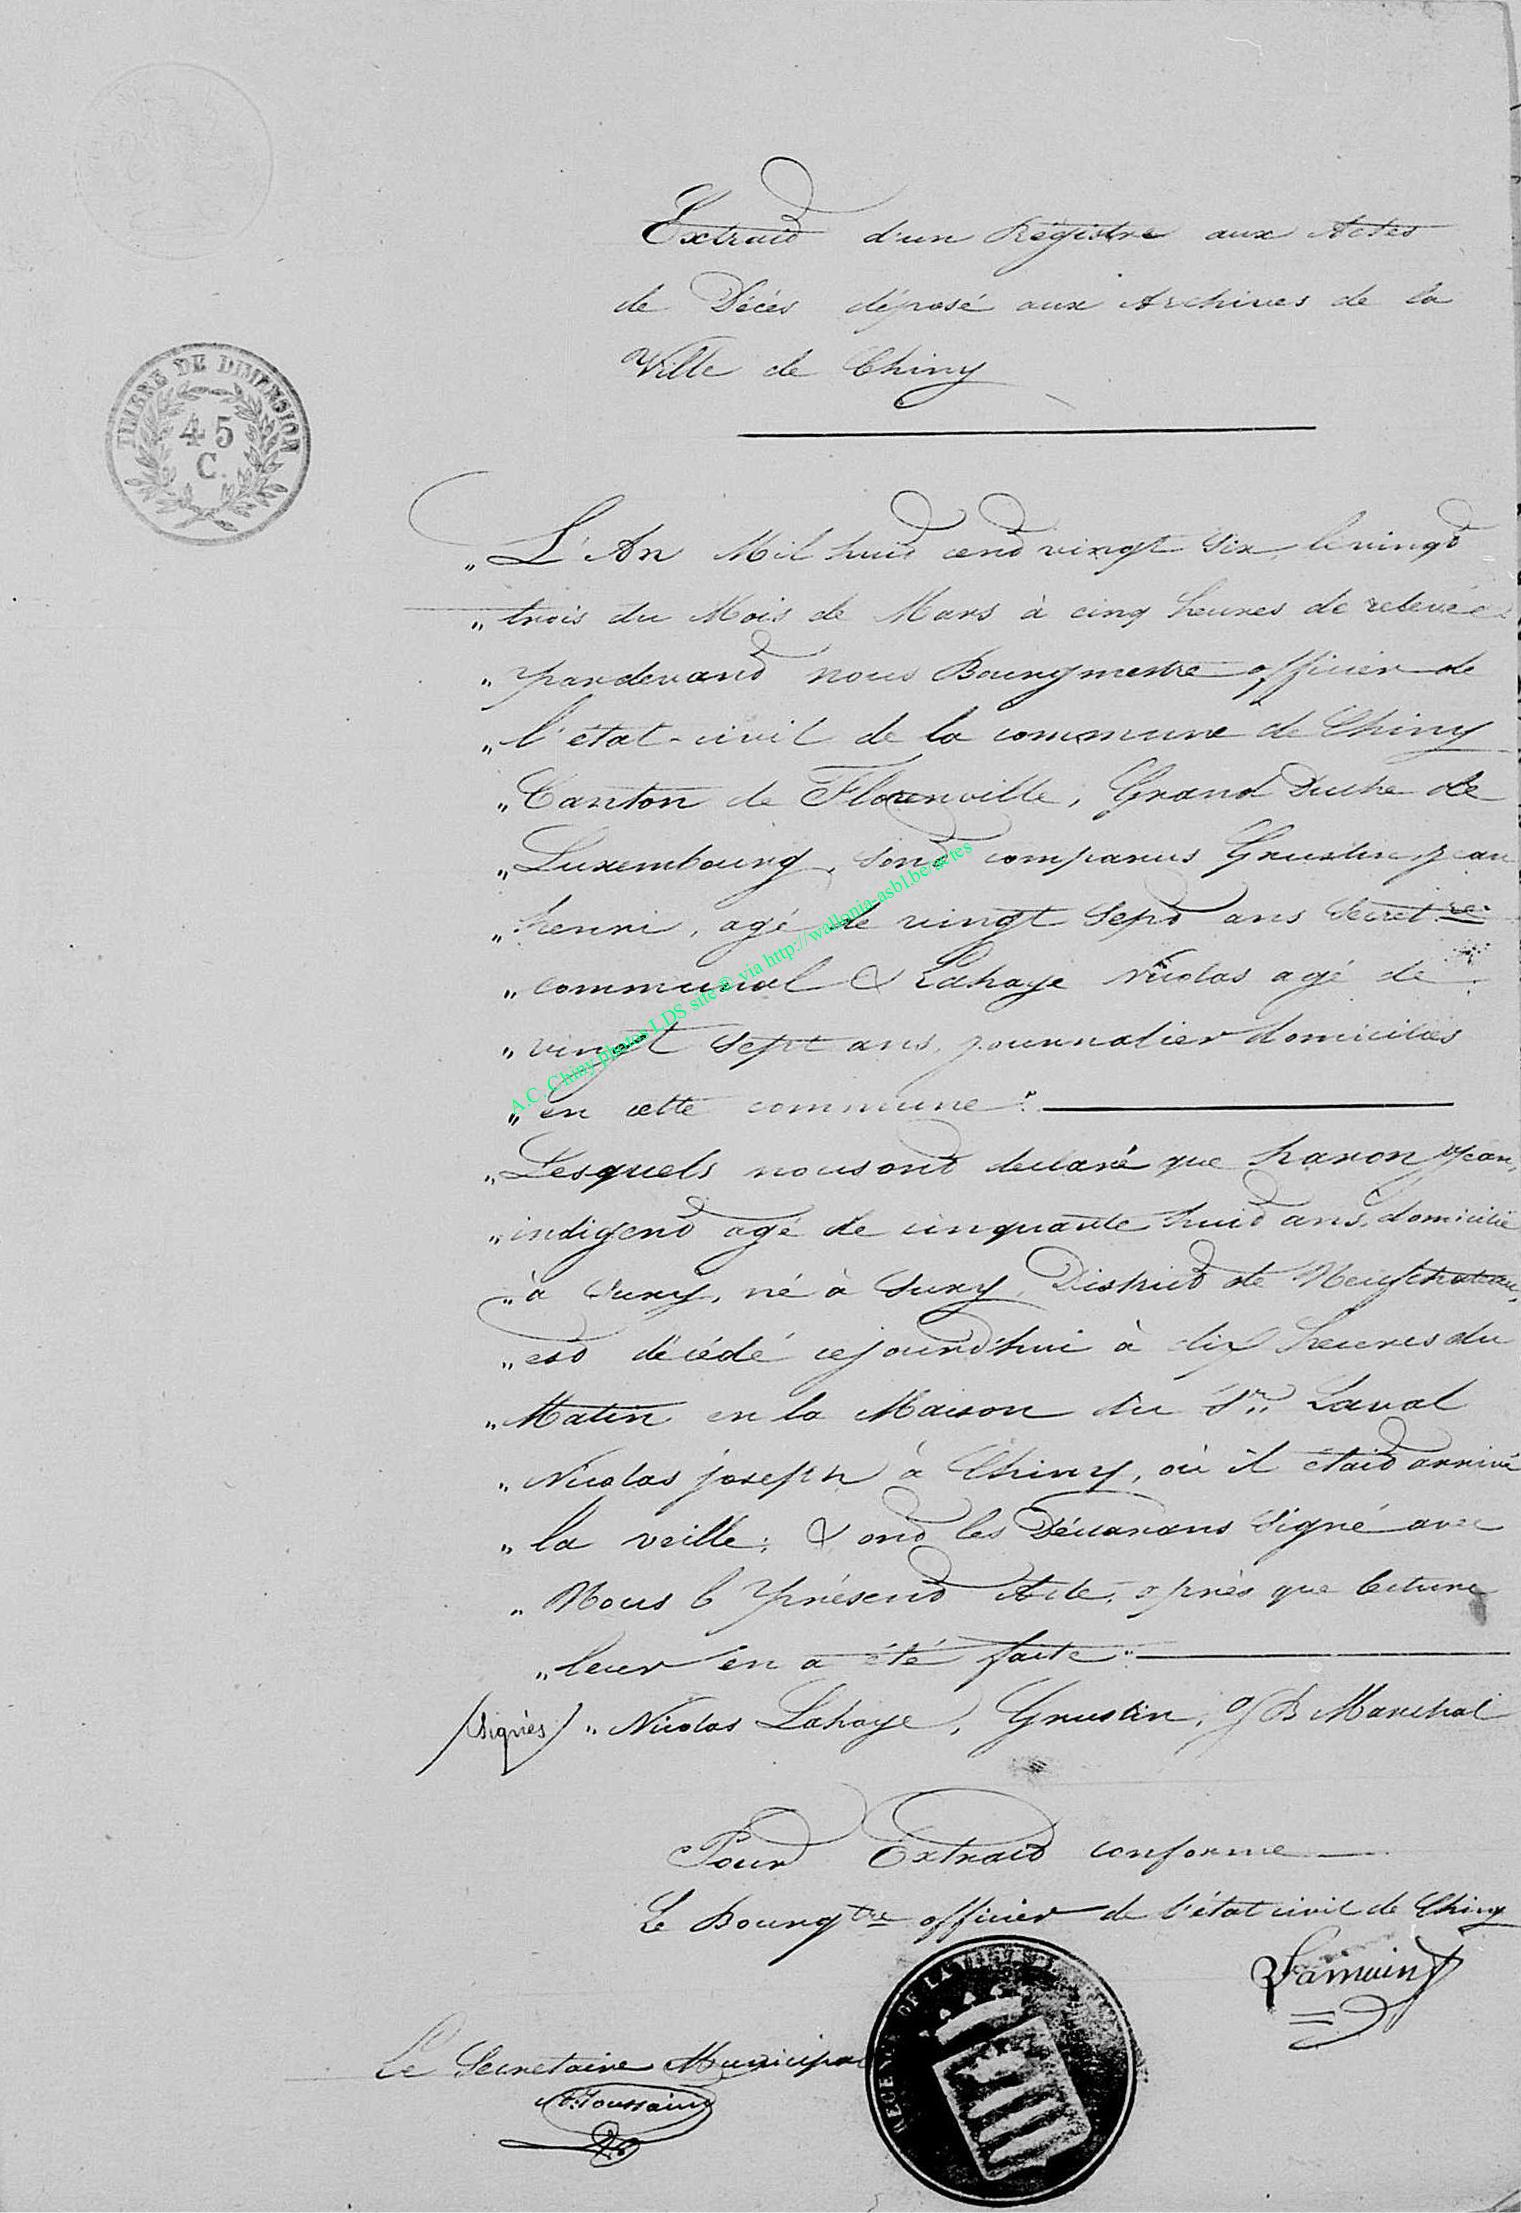 Extrait d'un Régistre aux Actes
de Décès déposé aux Archives de la
Ville de Chiny
TIMBRE DE DIMENSION
45
C.
„ L'An Mil huit cent vingt six, le vingt
„ trois du Mois de Mars à cinq heures de relevée
„ pardevant nous Bourgmestre officier de
„ l'état-civil de la commune de Chiny
„ Canton de Florenville, Grand Duché de
„ Luxembourg, sont comparus Grustin jean
„ henri, agé de vingt sept ans Secret.re
„ communal & Lahaye Nicolas agé de
„ vingt sept ans, journalier domiciliés
„ en cette commune.
„ Lesquels nous ont déclaré que haron jean,
„ indigent agé de cinquante huit ans, domicilié
„ à Suxy, né à Suxy, District de Neufchateau,
„ est décédé cejourd'hui à dix heures du
„ Matin en la Maison du Sr. Laval
„ Nicolas joseph à Chiny, où il était arrivé
„ la veille; & ont les Déclarans signé avec
„ Nous l' présent Acte, après que lecture
„ leur en a été faite."
(signés) „ Nicolas Lahaye, Grustin, J B Marchal
Pour Extrait conforme
Le Bourgtre officier de l'état civil de Chiny
Le Secretaire Municipal
Toussaint
A.C. Chiny photos LDS site © via http://wallonia-asbl.be/actes